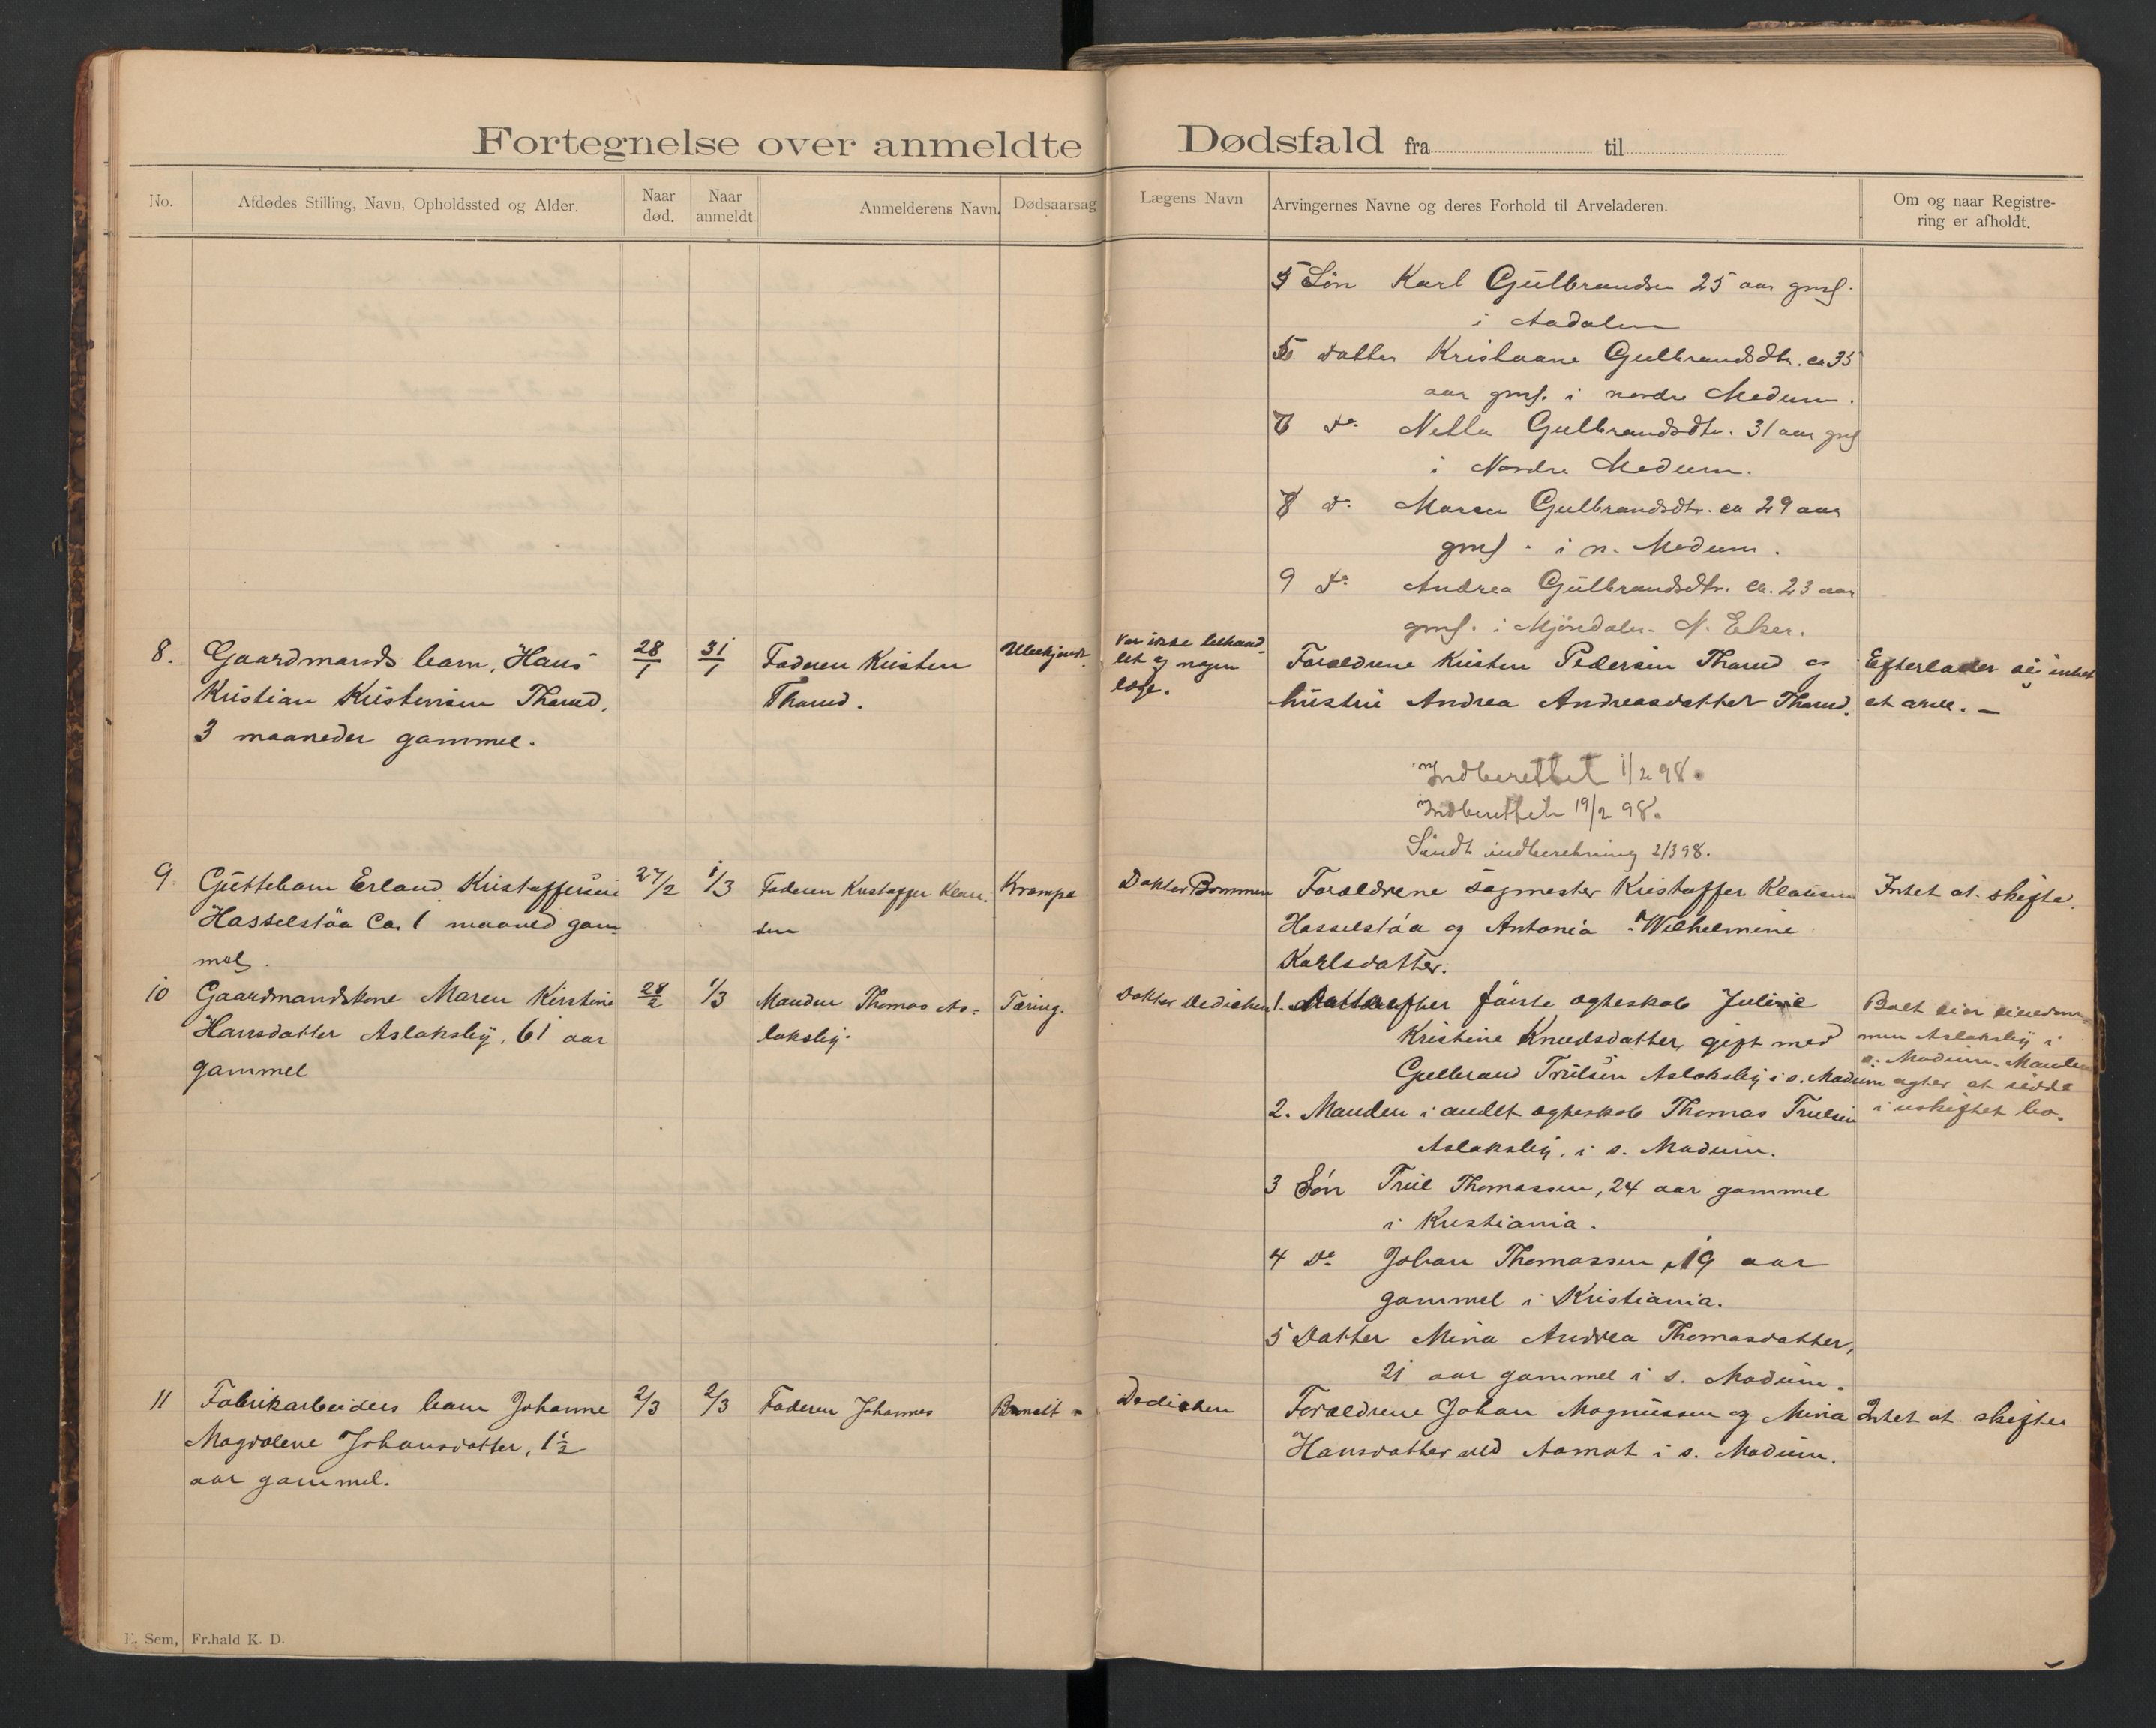 Fortegnelse over anmeldte Dødsfald fra til
No.
Afdødes Stilling, Navn, Opholdssted og Alder.
Naar død.
Naar anmeldt
Anmelderens Navn.
Dødsaarsag
Lægens Navn
Arvingernes Navne og deres Forhold til Arveladeren.
Om og naar Registre-
ring er afholdt.
5 Søn Karl Gulbrandsen 25 aar gml.
i Aadalen
6 Datter Kristiane Gulbrandsdtr. ca 35
aar gml. i nordre Modum.
7 Do Nella Gulbrandsdtr. 31 aar gml
i Nordre Modum.
8 Do Maren Gulbrandsdtr. ca 29 aar
gml. i n. Modum.
9 Do Andrea Gulbrandsdtr. ca. 23 aar
gml. i Mjöndalen N. Eker.
8.
Gaardmands barn, Hans
Kristian Kristensen Thorud,
3 maaneder gammel.
28/1
31/1
Faderen Kristen
Thorud.
Ubekjendt.
Var ikke behand-
let af nogen
læge.
Forældrene Kristen Pedersen Thorud og
hustru Andrea Andreasdatter Thorud.
Efterlader sig intet
at arve. —
Indberettet 1/2 98.
Indberettet 19/2 98.
Sendt indberetning 2/3 98.
9
Guttebarn Erland Kristoffersen
Hasselstöa Ca. 1 maaned gam-
mel.
27/2
1/3
Faderen Kristoffer Klau-
sen
Krampe
Doktor Bommen
Forældrene sagmester Kristoffer Klausen
Hasselstöa og Antonia Wilhelmine
Karlsdatter.
Intet at skifte.
10
Gaardmandskone Maren Kirstine
Hansdatter Aslaksby, 61 aar
gammel
28/2
1/3
Manden Thomas As-
laksby.
Tæring.
Doktor Dedichen
1. Datter efter förste ægteskab Juline
Kristine Knudsdatter, gift med
Gulbrand Trulsen Aslaksby i s. Modum
2. Manden i andet ægteskab Thomas Trulsen
Aslaksby, i s. Modum.
3 Søn Trul Thomassen, 24 aar gammel
i Kristiania.
4 Do Johan Thomassen, 19 aar
gammel i Kristiania.
5 Datter Mina Andrea Thomasdatter,
21 aar gammel i s. Modum.
Boet eier eiendom-
men Aslaksby i
s. Modum. Manden
agter at sidde
i uskiftet bo.
11
Fabrikarbeiders barn Johanne
Magdalene Johansdatter, 1½
aar gammel.
2/3
2/3
Faderen Johannes
Dedichen
Forældrene Johan Magnussen og Mina
Hansdatter ved Aamot i s. Modum.
Intet at skifte
E. Sem, Fr.hald K. D.